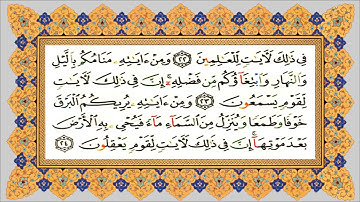 فِي ذَٰلِكَ لَآيَاتٍ لِّلْعَالِمِينَ ﴿٢٢﴾ وَمِنْ ءَايَاتِهِۦ مَنَامُكُم بِالَّيْلِ
وَالنَّهَارِ وَابْتِغَاؤُكُم مِّن فَضْلِهِۦٓ إِنَّ فِي ذَٰلِكَ لَآيَاتٍ
لِّقَوْمٍ يَسْمَعُونَ ﴿٢٣﴾ وَمِنْ ءَايَاتِهِۦ يُرِيكُمُ الْبَرْقَ
خَوْفًا وَطَمَعًا وَيُنَزِّلُ مِنَ السَّمَاءِ مَاءً فَيُحْيِۦ بِهِ الْأَرْضَ
بَعْدَ مَوْتِهَا إِنَّ فِي ذَٰلِكَ لَآيَاتٍ لِّقَوْمٍ يَعْقِلُونَ ﴿٢٤﴾